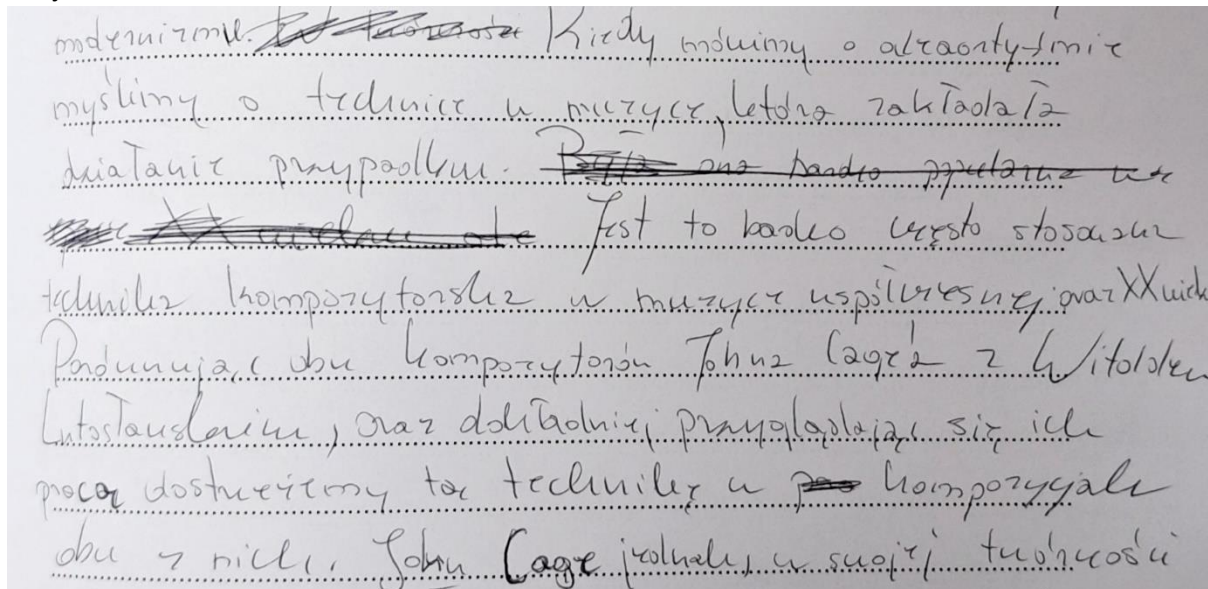 modernizmu. Kiedy mówimy o aleaontyźmie
myślimy o technice w muzyce, która zakładała
działanie przypadku.
Jest to bardzo często stosowana
technika kompozytorska w muzyce współczesnej oraz XX wiek
Porównując obu kompozytorów Johna Cage'a z Witoldem
Lutosławskim, oraz dokładniej przyglądając się ich
pracą dostrzeżemy tą technikę w kompozycjach
obu z nich. John Cage jednak, w swojej twórczości